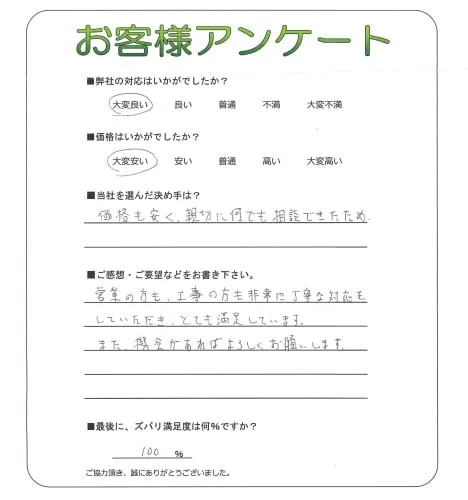 お客様アンケート
■弊社の対応はいかがでしたか？
大変良い 良い 普通 不満 大変不満
■価格はいかがでしたか？
大変安い 安い 普通 高い 大変高い
■当社を選んだ決め手は？
価格も安く、親切に何でも相談できたため
■ご感想・ご要望などをお書き下さい。
営業の方も、工事の方も非常に丁寧な対応を
していただき、とても満足しています。
また、機会があればよろしくお願いします。
■最後に、ズバリ満足度は何％ですか？
100 ％
ご協力頂き、誠にありがとうございました。